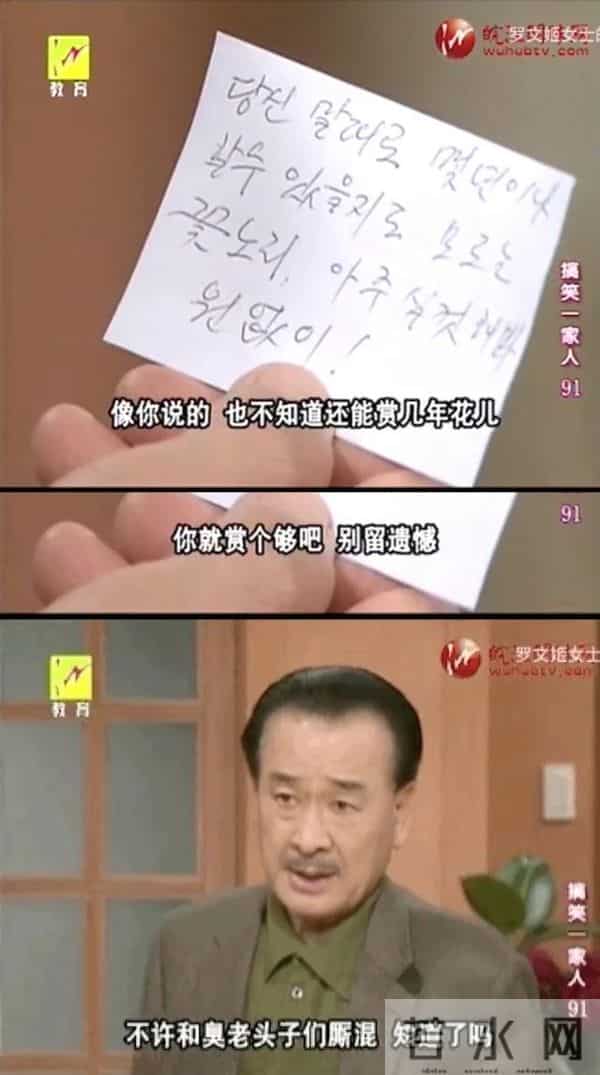 教育
罗文姬女士的
wuhubtv.com
당신 말대로 몇년이나
할수 있을지도 모르는
꽃노리, 아주 실컷 해봐
원없이!
搞笑一家人
91
像你说的 也不知道还能赏几年花儿
91
你就赏个够吧 别留遗憾
教育
罗文姬女士
wuhubtv.com
搞笑一家人
91
不许和臭老头子们厮混 知道了吗
若水网